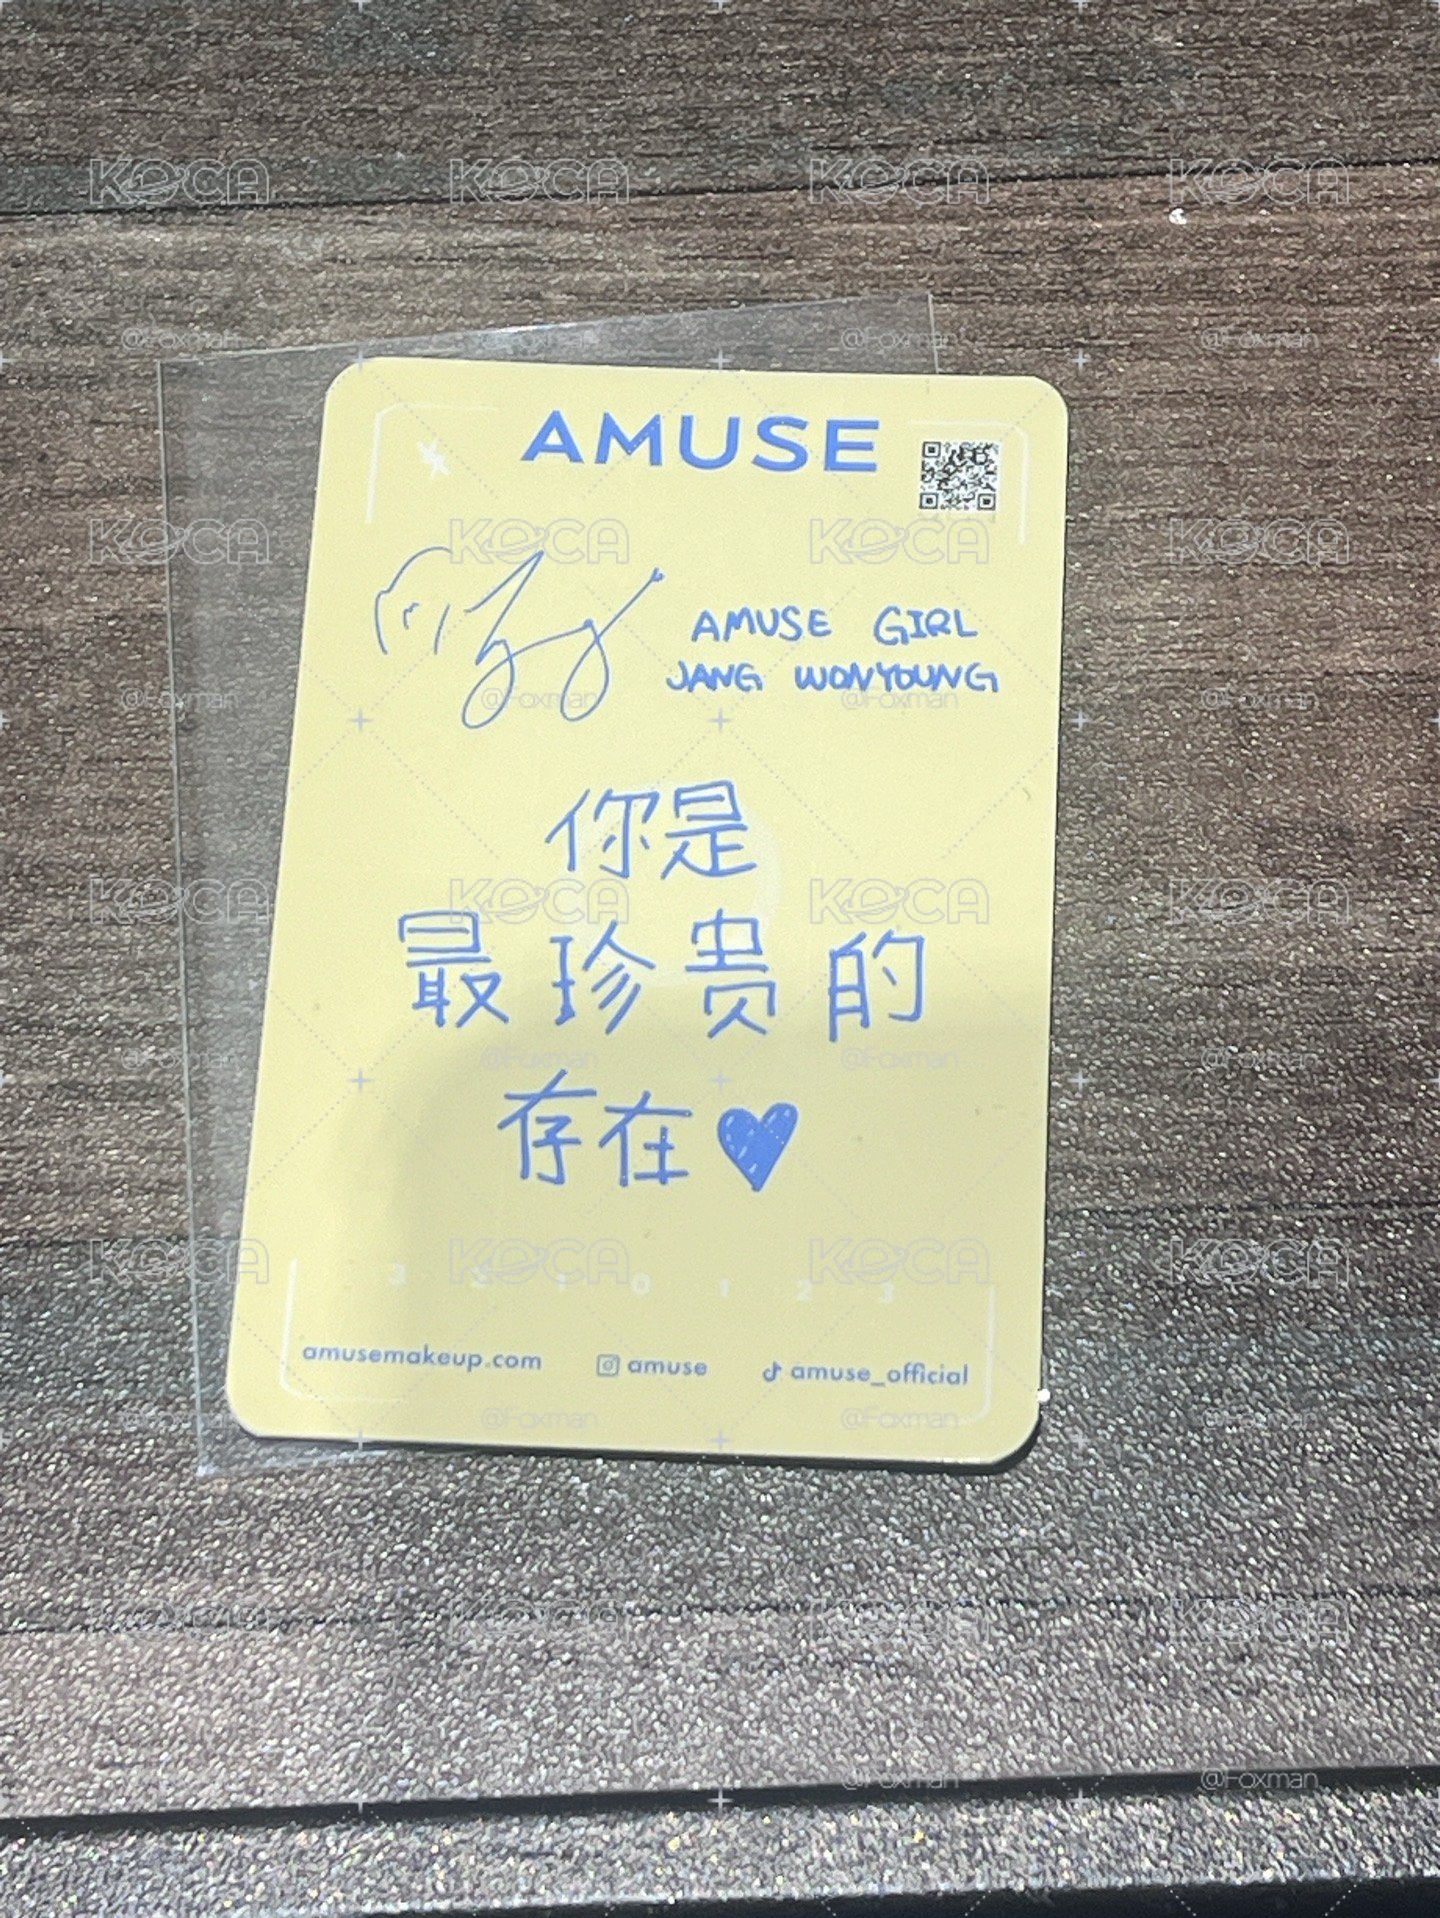 AMUSE
AMUSE GIRL
JANG WONYOUNG
你是
最珍贵的
存在♥
amusemakeup.com amuse amuse_official
KOCA
@Foxman